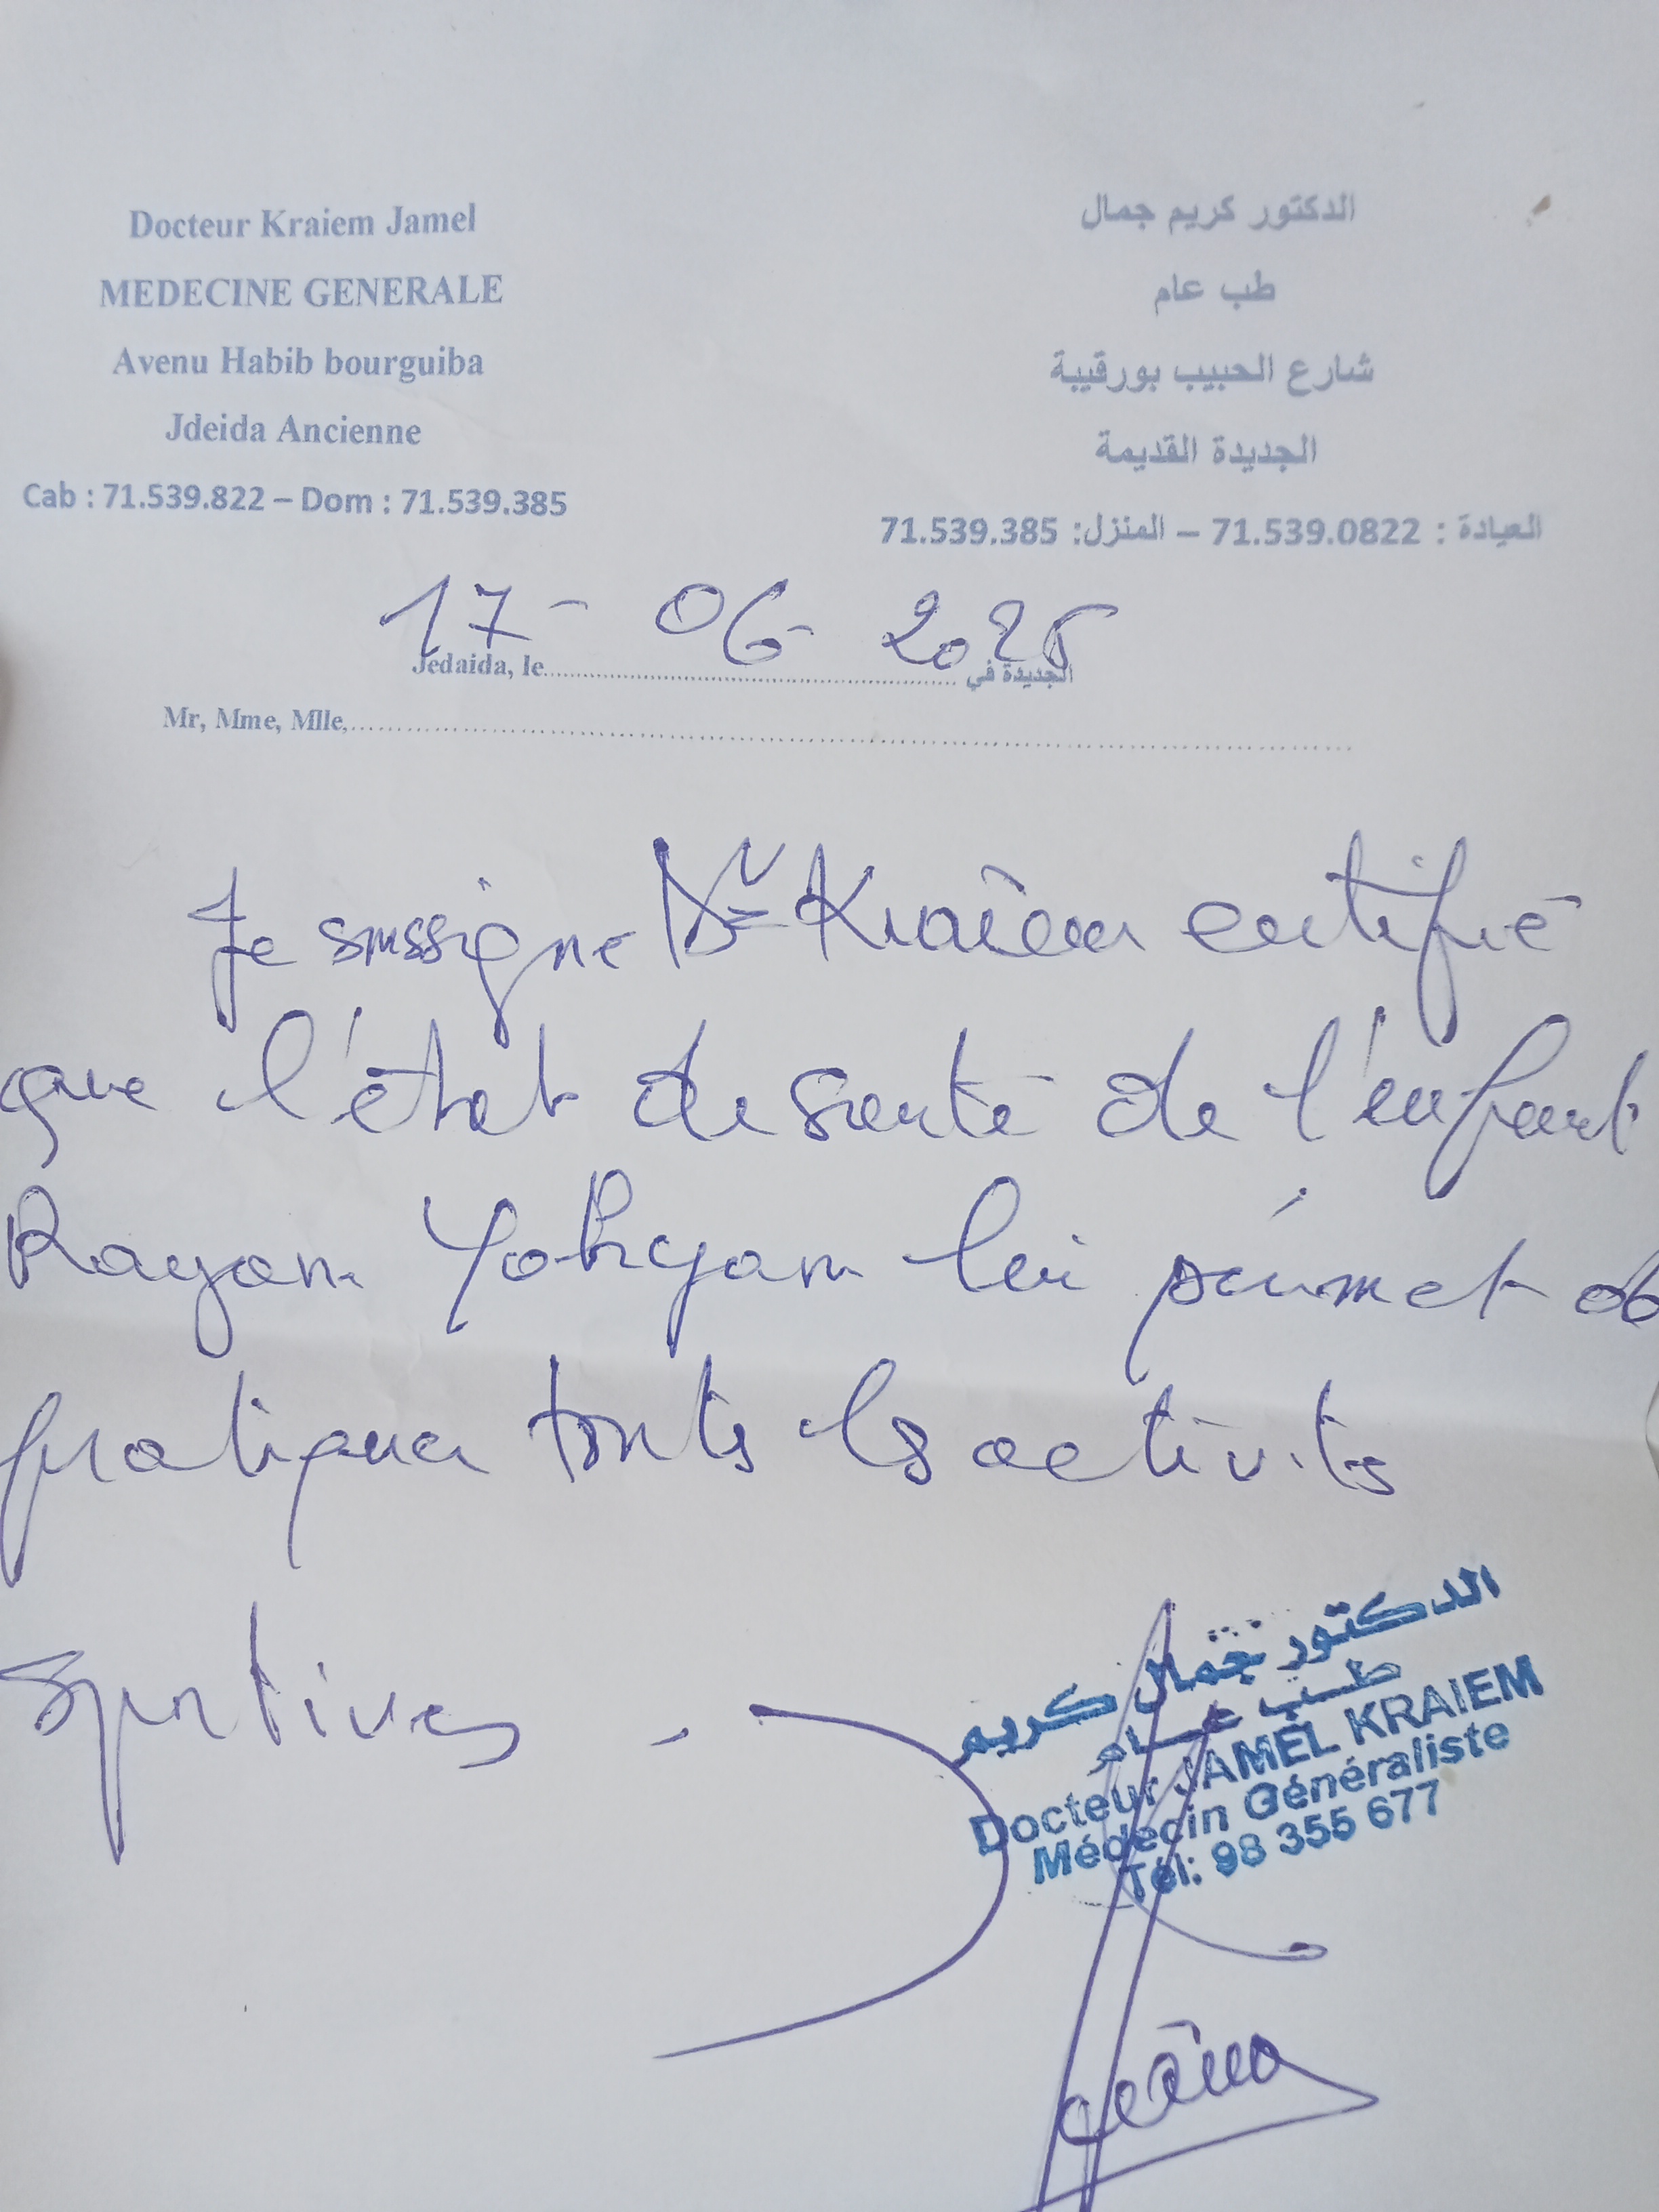 Docteur Kraiem Jamel
MEDECINE GENERALE
Avenu Habib bourguiba
Jdeida Ancienne
Cab : 71.539.822 – Dom : 71.539.385
الدكتور كريم جمال
طب عام
شارع الحبيب بورقيبة
الجديدة القديمة
العيادة : 71.539.0822 – المنزل: 71.539.385
17- 06- 2025
Jedaida, le ... الجديدة في
Mr, Mme, Mlle, ...
Je soussigne Dr Kraiem certifie
que l'état de santé de l'enfant
Rayan lui permet de
pratiquer touts les activités
sportives -
الدكتور جمال كريم
طب عام
Docteur JAMEL KRAIEM
Médecin Généraliste
Tél: 98 355 677